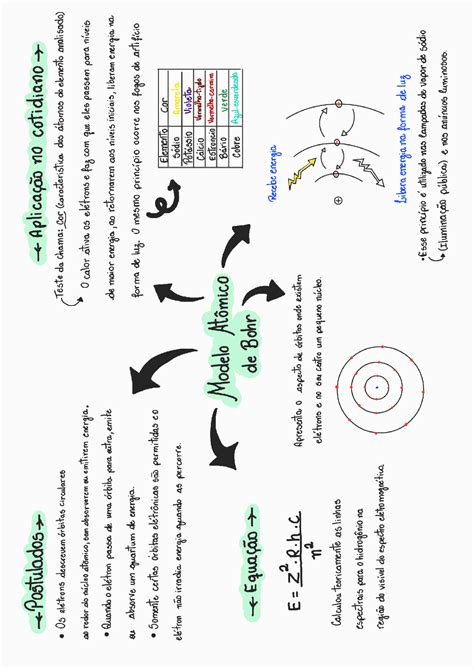 Modelo Atômico
de Bohr
→Postulados→
• Os elétrons descrevem órbitas circulares
ao redor do núcleo atômico, sem absorverem ou emitirem energia.
• Quando o elétron passa de uma órbita para outra, emite
ou absorve um quantum de energia.
• Somente certas órbitas eletrônicas são permitidas e o
elétron não irradia energia quando as percorre.
→Aplicação no cotidiano→
Teste da chama: Cor (característica dos átomos do elemento analisado)
O calor ativa os elétrons e faz com que eles passem para níveis
de maior energia, ao retornarem aos níveis iniciais, liberam energia na
forma de luz. O mesmo princípio ocorre nos fogos de artifício
Elemento Cor
Sódio Amarela
Potássio Violeta
Cálcio Vermelho-tijolo
Estrôncio Vermelho-carmim
Bário Verde
Cobre Azul-esverdeada
←Equação→
E = Z² · R · h · C
n²
Calculou teoricamente as linhas
espectrais para o hidrogênio na
região do visível do espectro eletromagnético
Apresenta o aspecto de órbitas onde existem
elétrons e no seu centro um pequeno núcleo.
Recebe energia
Libera energia na forma de luz
• Esse princípio é utilizado nas lâmpadas de vapor de sódio
(Iluminação pública) e nos anúncios luminosos.